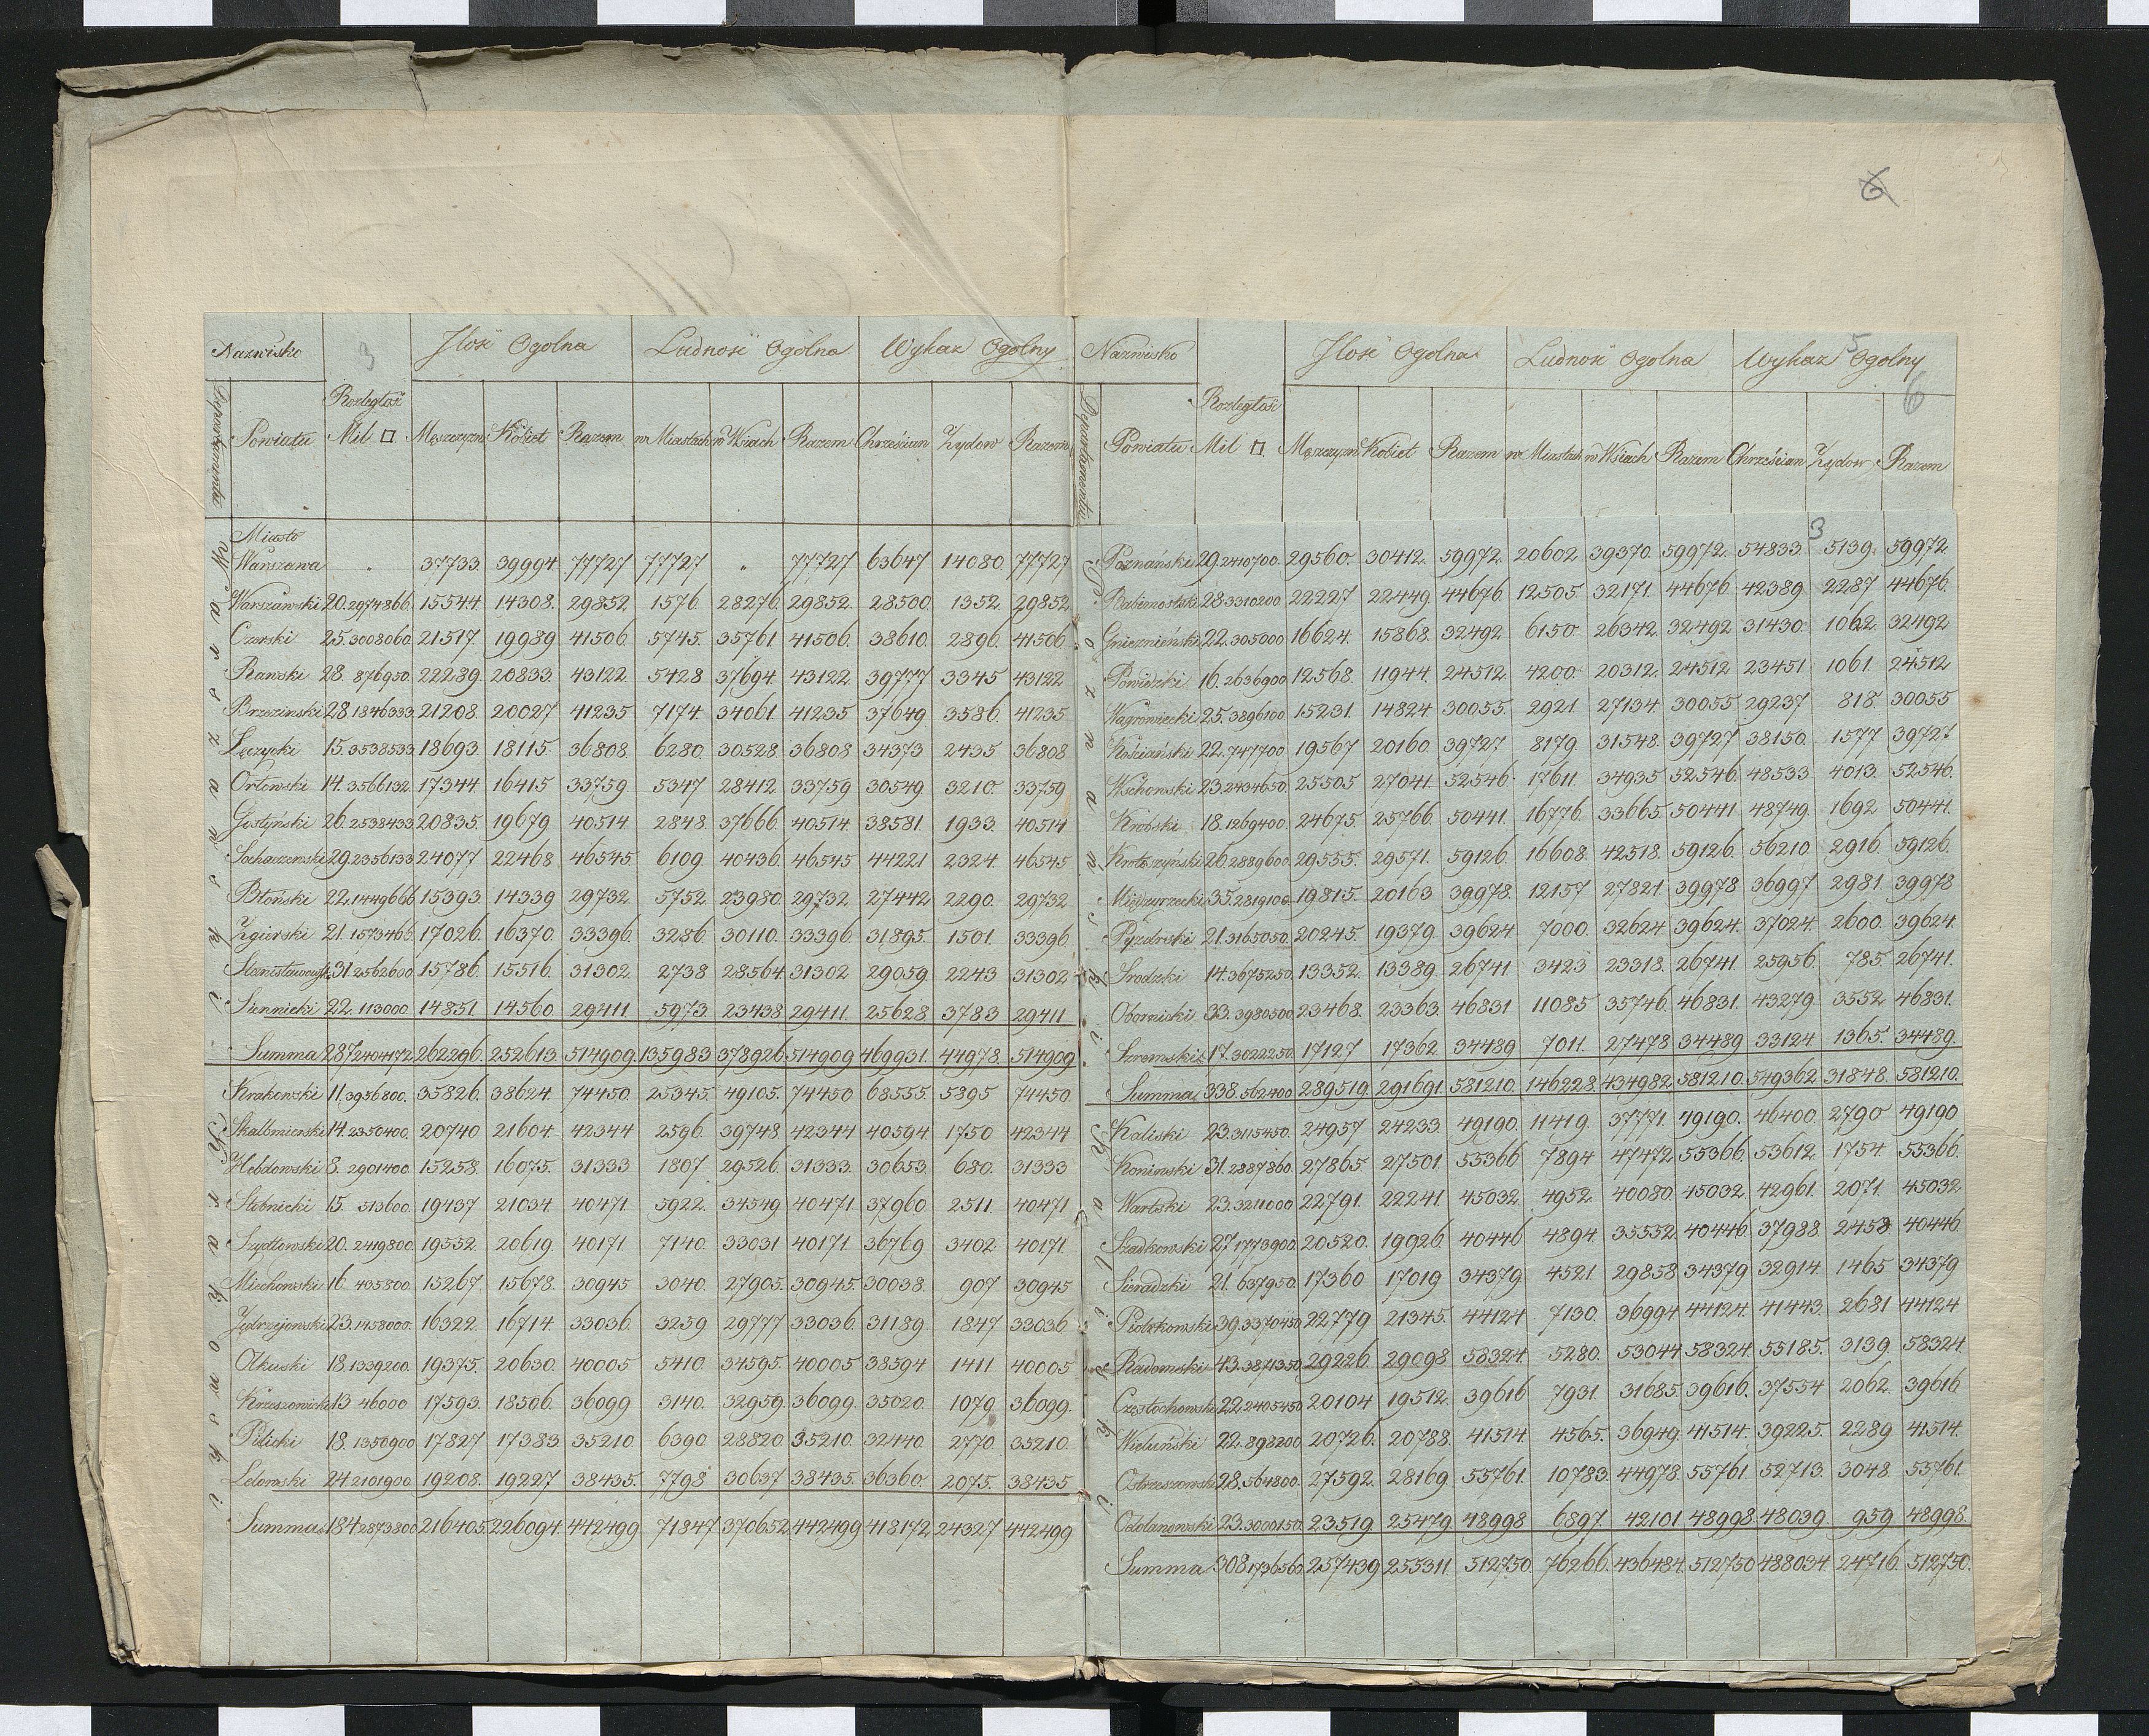 6
Nazwisko 3 Jlość Ogolna Ludność Ogolna Wykaz Ogolny
Departamentu Powiatu Rozległość Mil □ Męszczyzn Kobiet Razem w Miastach w Wsiach Razem Chrześcian Żydow Razem
Warszawski
Miasto
Warszawa 37733 39994 77727 77727 77727 63647 14080 77727
Warszawski 20.2974866 15544 14308. 29852 1576. 28276 29852. 28500 1352 29852
Czerski 25.3008060 21517 19989 41506 5745. 35761 41506. 38610. 2896. 41506
Rawski 28. 876950. 22289 20833 43122. 5428 37694 43122. 39777 3345 43122
Brzezinski 28.1846333 21208. 20027 41235 7174. 34061. 41235 37649 3586. 41235
Łęczycki 15.3538533 18693. 18115. 36808. 6280. 30528. 36808 34373 2435 36808
Orłowski 14.3566132 17344. 16415 33759 5347 28412 33759 30549 3210. 33759
Gostyński 26.2538433 20835. 19679 40514 2848. 37666. 40514. 38581. 1933. 40514
Sochaczewski 29.2356133 24077 22468. 46545 6109. 40436. 46545 44221 2324 46545
Błoński 22.1449666 15393 14339 29732. 5752 23980. 29732 27442 2290. 29732
Zgierski 21.1573466 17026. 16370. 33396. 3286 30110. 33396 31895. 1501. 33396
Stanisławowsk 31.2562600 15786. 15516. 31302. 2738 28564. 31302 29059. 2243 31302
Siennicki 22. 113000 14851. 14560. 29411. 5973. 23438 29411. 25628. 3783 29411
Summa 287.2404172 262296. 252613. 514909. 135983 378926. 514909 469931. 44978. 514909
Krakowski
Krakowski 11.3956800. 35826. 38624. 74450. 25345. 49105. 74450 68555. 5895 74450
Skalbmierski 14.2350400. 20740 21604. 42344 2596. 39748. 42344 40594 1750 42344
Hebdowski 8. 2901400. 15258. 16075. 31333 1807. 29526. 31333. 30653. 680. 31333
Stobnicki 15. 513600. 19437 21034. 40471. 5922. 34549 40471. 37960. 2511. 40471
Szydłowski 20. 2419800. 19552. 20619. 40171. 7140. 33031 40171. 36769. 3402 40171.
Miechowski 16. 435800. 15267. 15678. 30945 3040. 27905. 30945. 30038. 907 30945
Jędrzejowski 23.1458000. 16322. 16714. 33036. 3259 29777 33036. 31189. 1847 33036.
Olkuski 18.1339200. 19375. 20630. 40005 5410. 34595. 40005 38594 1411 40005
Krzeszowicki 13 46000 17593. 18506. 36099 3140. 32959. 36099. 35020. 1079. 36099.
Pilicki 18.1350900 17827 17383 35210 6390 28820 35210. 32440. 2770. 35210.
Lelowski 24.2101900 19208. 19227 38435. 7798 30637 38435. 36360. 2075. 38435
Summa 184.2873800 216405. 226094. 442499 71847 370652. 442499 418172 24327 442499
Nazwisko Jlość Ogolna Ludność Ogolna Wykaz 5 Ogolny
6
Departamentu Powiatu Rozległość Mil □. Męszczyzn Kobiet Razem w Miastach w Wsiach Razem Chrześcian Żydow Razem
3
Poznański
Poznański 29.2410700. 29560. 30412. 59972. 20602 39370. 59972. 54833. 5139. 59972
Babimostski 28.3310200 22227 22449. 44676. 12505. 32171. 44676. 42389. 2287 44676.
Gnieznieński 22. 305000 16624. 15868. 32492 6150. 26342. 32492 31430 1062. 32492
Powidzki 16.2636900 12568. 11944. 24512. 4200. 20312. 24512 23451 1061. 24512
Wągrowiecki 25.3896100 15231. 14824. 30055. 2921 27134. 30055 29237 818. 30055
Kościański 22.747700 19567 20160 39727 8179. 31548. 39727 38150. 1577 39727
Wschowski 23.2434650 25505 27041. 52546. 17611 34935 52546. 48533 4013. 52546.
Krobski 18.1269400. 24675. 25766. 50441. 16776. 33665. 50441 48749 1692 50441.
Krotoszyński 26.2889600. 29555. 29571. 59126. 16608. 42518. 59126. 56210 2916. 59126.
Międzyrzecki 35.2819100. 19815. 20163 39978. 12157 27821 39978 36997 2981. 39978
Pyzdrski 21.3165050 20245. 19379. 39624. 7000. 32624. 39624. 37024. 2600. 39624.
Srodzki 14.3675250. 13352. 13389. 26741. 3423 23318. 26741. 25956. 785. 26741.
Obornicki 33. 3980500. 23468. 23363. 46831 11085 35746. 46831. 43279. 3552 46831.
Szremski 17.3022250. 17127 17362. 34489 7011. 27478 34489 33124 1365. 34489.
Summa 338.562400 289519. 291691. 581210. 146228. 434982. 581210. 549362. 31848. 581210.
Kaliski
Kaliski 23.3115450. 24957 24233 49190. 11419. 37771. 49190. 46400. 2790 49190
Koninski 31.2887860. 27865. 27501. 55366 7894 47472 55366. 53612. 1754. 55366.
Wartski 23.3211000 22791. 22241. 45032. 4952. 40080. 45032. 42961. 2071. 45032
Szadkowski 27.1773900 20520. 19926. 40446 4894. 35552. 40446. 37988. 2458 40446.
Sieradzki 21. 637950. 17360 17019 34379 4521 29858 34379 32914. 1465 34379
Piotrkowski 39.3370450 22779 21345. 44124 7130. 36994 44124. 41443. 2681 44124
Radomski 43.3871350 29226. 29098 58324 5280. 53044 58324. 55185. 3139. 58324.
Częstochowski 22.2405450 20104 19512. 39616 7931. 31685. 39616. 37554 2062. 39616
Wieluński 22.898200 20726. 20788. 41514. 4565. 36949. 41514. 39225. 2289 41514.
Ostrzeszowski 28.564800. 27592. 28169. 55761. 10783. 44978. 55761. 52713. 3048. 55761.
Odolanowski 23.3000150. 23519. 25479. 48998 6897. 42101 48998. 48039. 959 48998.
Summa 308.1736560 257439 255311. 512750. 76266. 436484. 512750 488034. 24716. 512750.